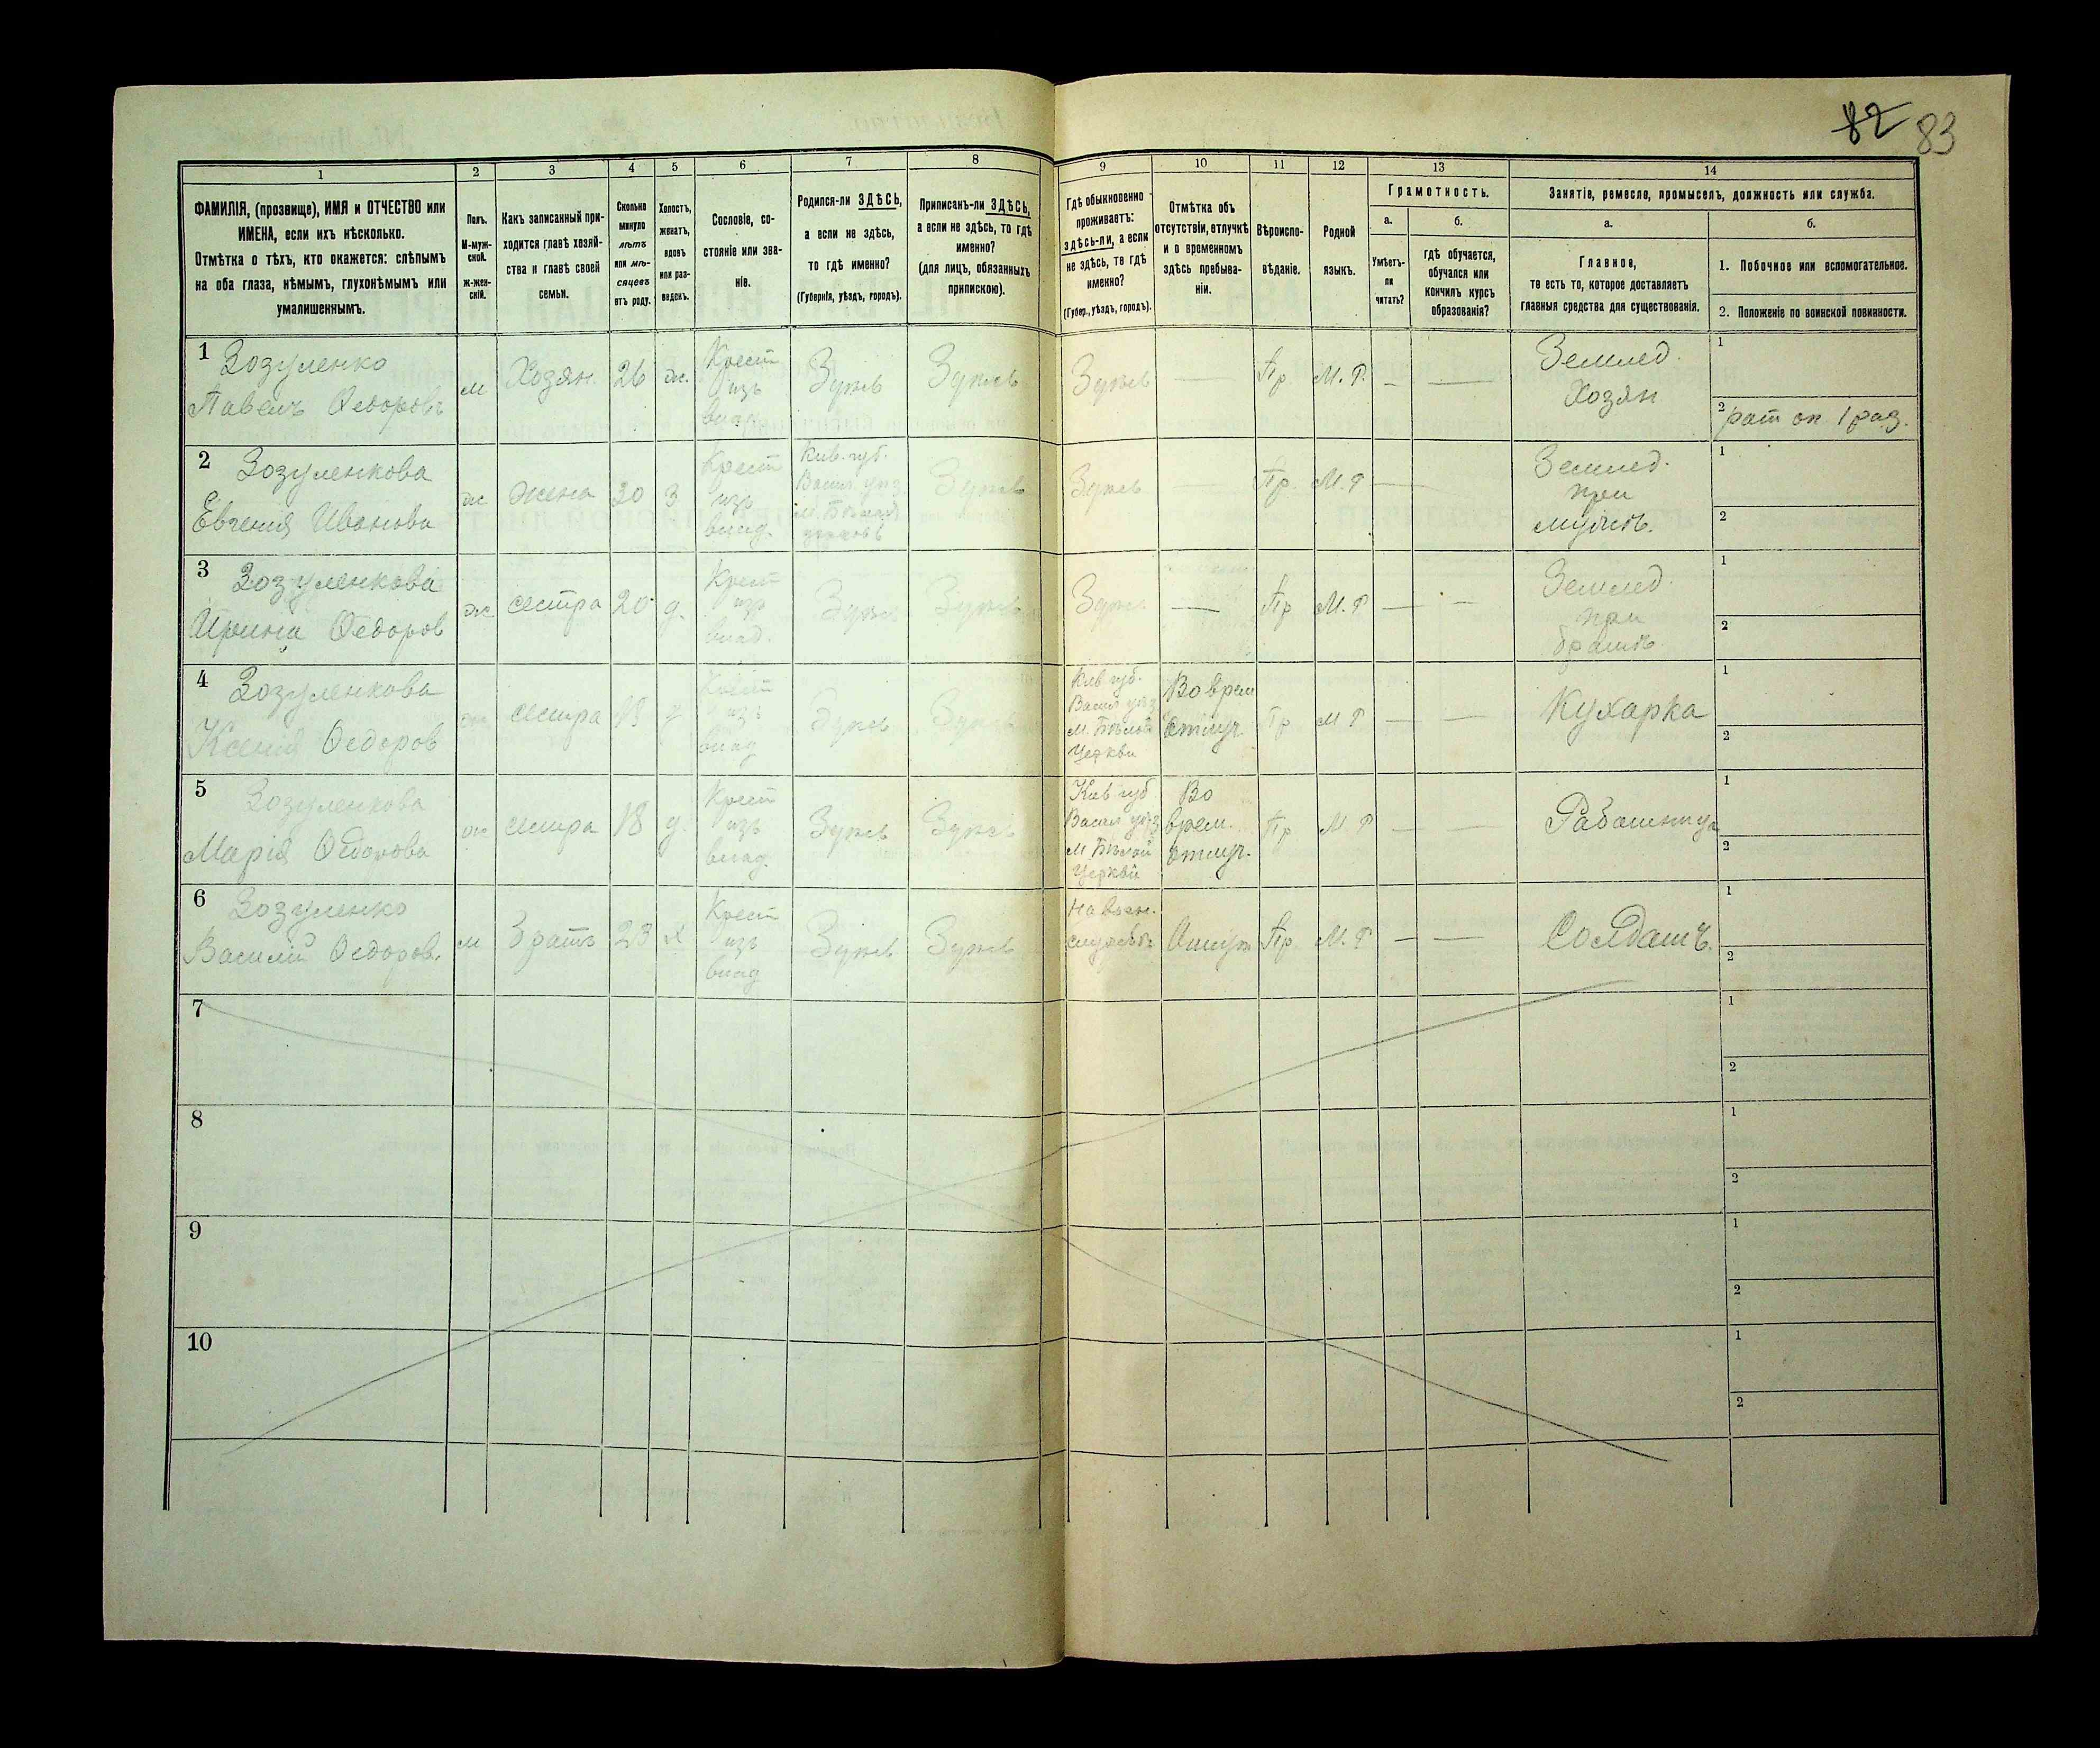 82 83
1 2 3 4 5 6 7 8 9 10 11 12 13 14
ФАМИЛІЯ, (прозвище), ИМЯ и ОТЧЕСТВО или
ИМЕНА, если ихъ нѣсколько.
Отмѣтка о тѣхъ, кто окажется: слѣпымъ
на оба глаза, нѣмымъ, глухонѣмымъ или
умалишеннымъ.
Полъ.
М-муж-
ской.
ж-жен-
скій.
Какъ записанный при-
ходится главѣ хозяй-
ства и главѣ своей
семьи.
Сколько
минуло
лѣтъ
или мѣ-
сяцевъ
отъ роду.
Холостъ,
женатъ,
вдовъ
или раз-
веденъ.
Сословіе, со-
стояніе или зва-
ніе.
Родился-ли ЗДѢСЬ,
а если не здѣсь,
то гдѣ именно?
(Губернія, уѣздъ, городъ).
Приписанъ-ли ЗДѢСЬ,
а если не здѣсь, то гдѣ
именно?
(для лицъ, обязанныхъ
припискою).
Гдѣ обыкновенно
проживаетъ:
здѣсь-ли, а если
не здѣсь, то гдѣ
именно?
(Губер., уѣздъ, городъ).
Отмѣтка объ
отсутствіи, отлучкѣ
и о временномъ
здѣсь пребыва-
ніи.
Вѣроиспо-
вѣданіе.
Родной
языкъ.
Грамотность.
а.
Умѣетъ-
ли
читать?
б.
гдѣ обучается,
обучался или
кончилъ курсъ
образованія?
Занятіе, ремесло, промыселъ, должность или служба.
а.
Главное,
то есть то, которое доставляетъ
главныя средства для существованія.
б.
1. Побочное или вспомогательное.
2. Положеніе по воинской повинности.
1 Зозуленко
Павелъ Ѳедоровъ
м
Хозян.
26
ж.
Крест
изъ
влад.
Здѣсь
Здѣсь
Здѣсь
—
Пр
М. Р.
—
—
Землед.
Хозян
1
2 рат оп 1 раз.
2 Зозуленкова
Евгенія Иванова
ж
жена
20
З
Крест
изъ
влад.
Кив. губ.
Васил уѣз.
м. Бѣлая
Здѣсь
Здѣсь
—
Пр.
М. Р
—
Землед.
при
мужѣ.
1
2
3 Зозуленкова
Ирина Ѳедоров
ж
сестра
20
д.
Крест
изъ
влад.
Здѣсь
Здѣсь
Здѣсь
—
Пр
М. Р
—
—
Землед.
при
братѣ.
1
2
4 Зозуленкова
Ксенія Ѳедоров
ж
сестра
18
д
Крест
изъ
влад
Здѣсь
Здѣсь
Кив губ.
Васил уѣз
м. Бѣлой
Церкви
Во врем
отлуч.
Пр
М Р
—
—
Кухарка
1
2
5 Зозуленкова
Марія Ѳедорова
ж
сестра
18
д.
Крест
изъ
влад.
Здѣсь
Здѣсь
Кив губ
Васил уѣз
М Бѣлой
Церкви
Во
врем.
отлуч.
Пр
М Р
—
—
Работница
1
2
6 Зозуленко
Василій Ѳедоров.
м
братъ
23
х
Крест
изъ
влад
Здѣсь
Здѣсь
На воен.
службѣ
Пр.
М. Р
—
—
Солдатъ.
1
2
7
1
2
8
1
2
9
1
2
10
1
2